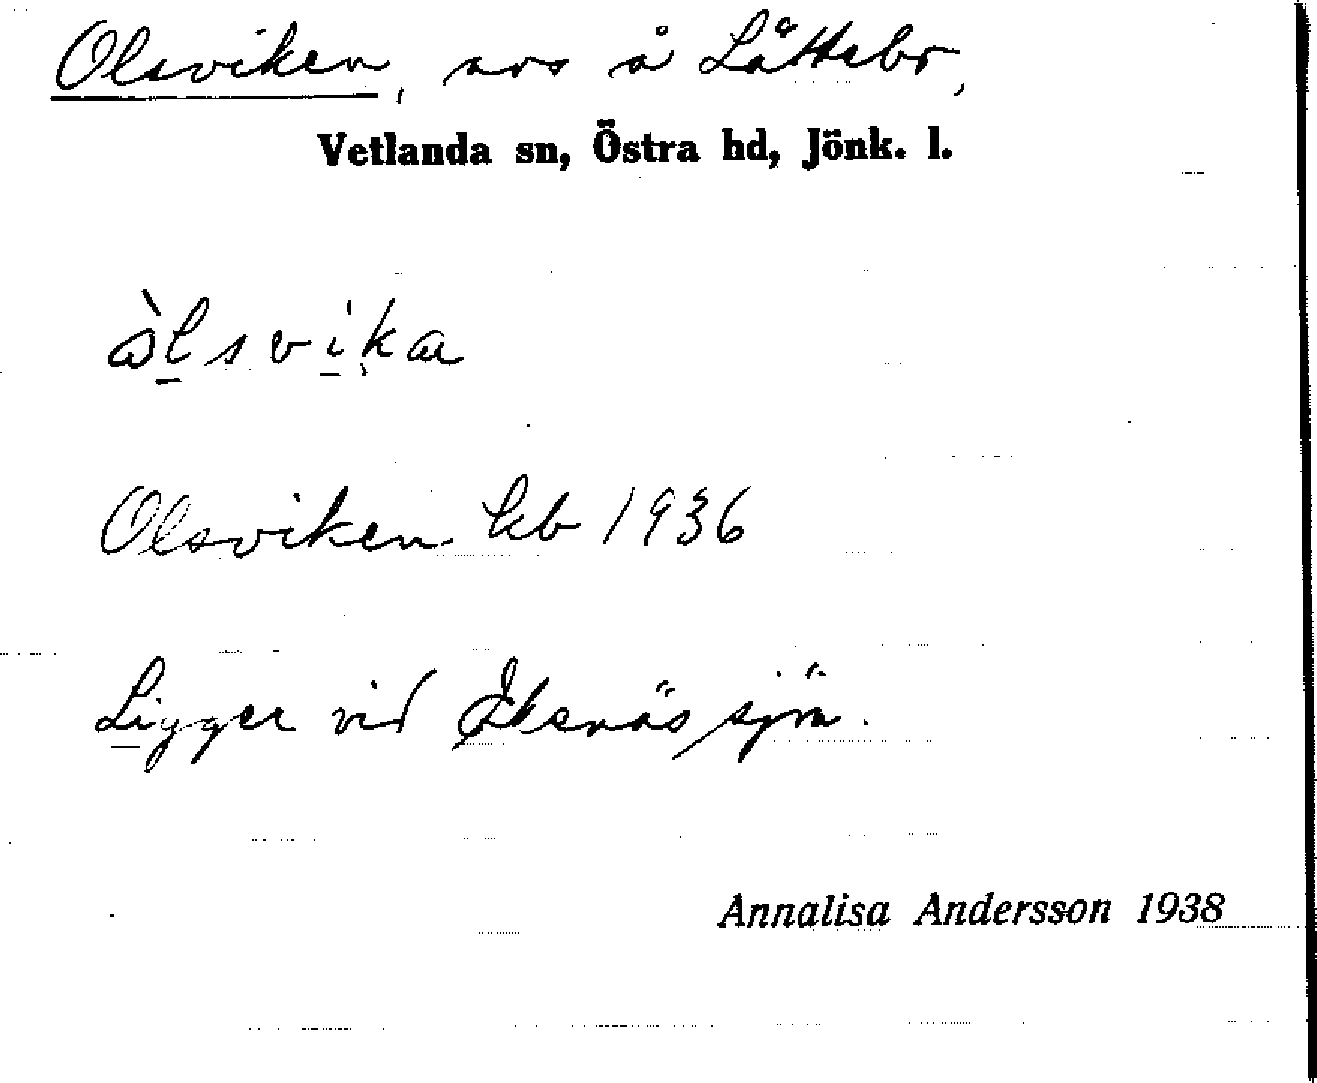 Olsviken, avs å Låttebr,
Vetlanda sn, Östra hd, Jönk. l.
òlsvika
Olsviken kb 1936
Ligger vid Ekenässjön.
Annalisa Andersson 1938